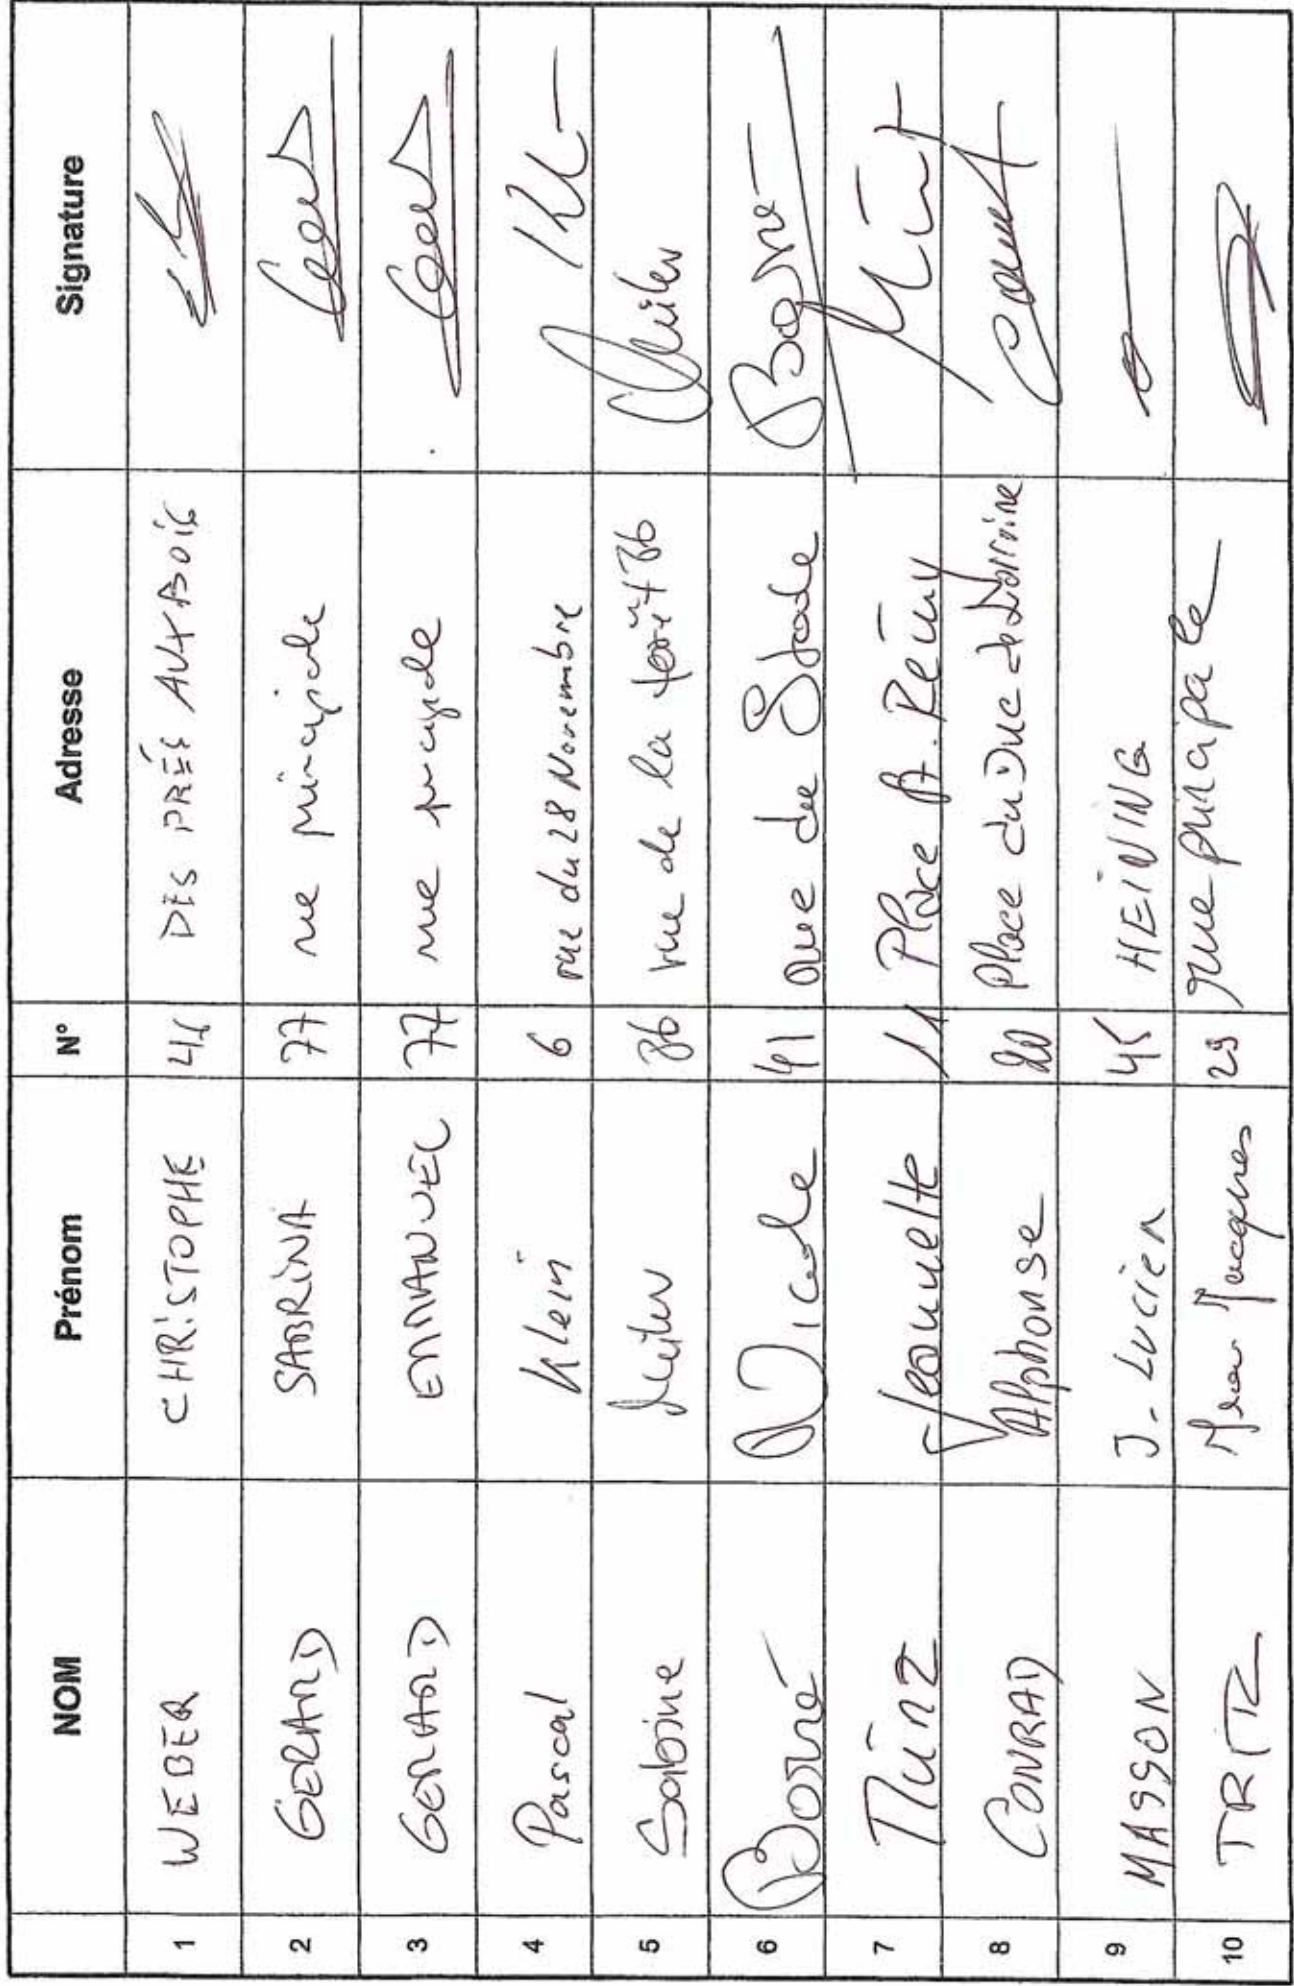 NOM Prénom N° Adresse Signature
1 WEBER CHRISTOPHE DES PRÉS AUX BOIS
2 GERARD SABRINA 77 rue principale
3 GERARD EMMANUEL 77 rue principale
4 Pascal Klein 6 rue du 28 Novembre
5 Sabine rue de la
6 Borné Nicole 41 rue de Stade Borné
7 Münz Jeannette 11 Place A. Rémy Münz
8 CONRAD Alphonse 20 Place du Duc de Lorraine
9 MASSON J. LUCIEN 45 HEINING
10 TRITZ Jean Jacques 29 rue principale